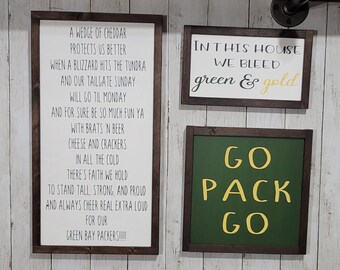 A WEDGE OF CHEDDAR
PROTECTS US BETTER
WHEN A BLIZZARD HITS THE TUNDRA
AND OUR TAILGATE SUNDAY
WILL GO TIL MONDAY
AND FOR SURE BE SO MUCH FUN YA
WITH BRATS 'N BEER
CHEESE AND CRACKERS
IN ALL THE COLD
THERE'S FAITH WE HOLD
TO STAND TALL, STRONG, AND PROUD
AND ALWAYS CHEER REAL EXTRA LOUD
FOR OUR
GREEN BAY PACKERS!!!!
IN THIS HOUSE
WE BLEED
green & gold
GO
PACK
GO